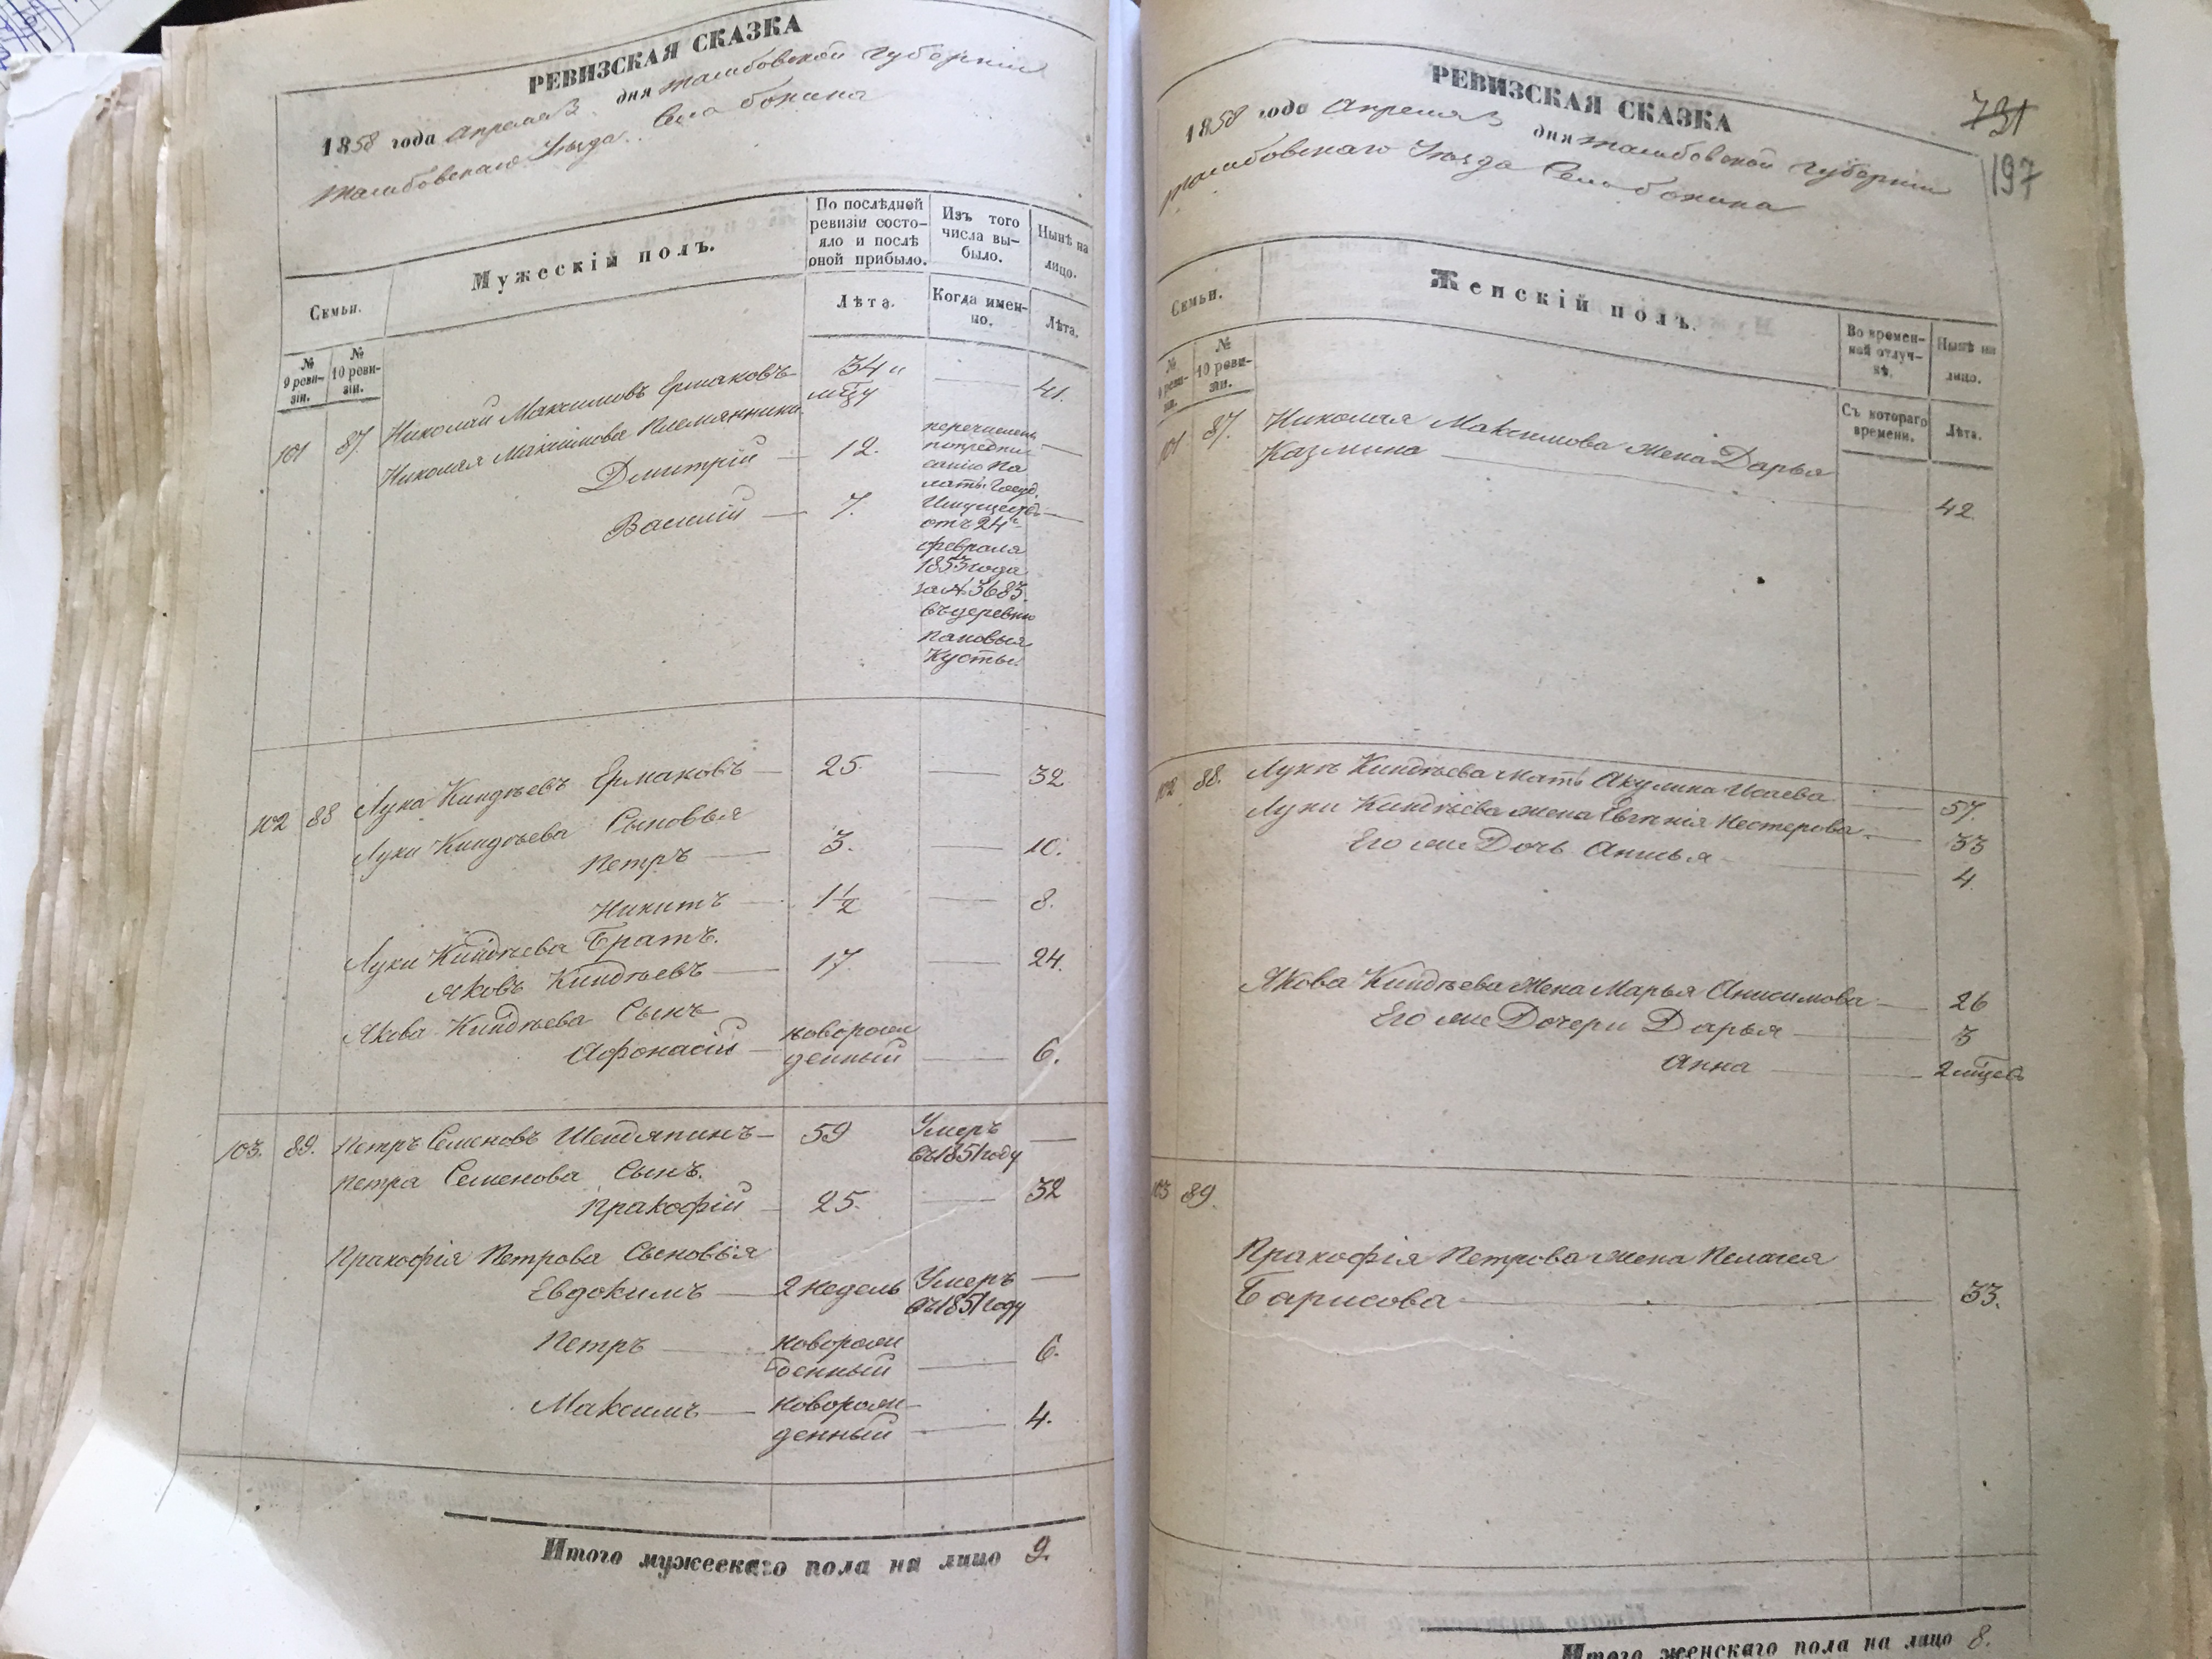 РЕВИЗСКАЯ СКАЗКА
1858 года Апреля 3 дня Тамбовской Губернии
Тамбовскаго Уѣзда Села Бокина
Семьи.
Мужескій полъ.
По послѣдней ревизіи состояло и послѣ оной прибыло.
Изъ того числа выбыло.
Нынѣ на лицо.
№ 9 ревизіи.
№ 10 ревизіи.
Лѣта.
Когда именно.
Лѣта.
101 87. Николай Максимовъ Ермаковъ 34 41.
Николая Максимова Племянники
Дмитрій — 12. —
Василій — 7. —
перечислены
по предпи
санію Па
латы Госуд.
Имуществъ
отъ 24
февраля
1855 года
за № 3683.
въ деревню
Пановыя
Кусты.
102 88 Лука Киндѣевъ Ермаковъ — 25. — 32
Луки Киндѣева Сыновья
Петръ — 3. — 10.
Никитъ — 1½ — 8.
Луки Киндѣева Братъ.
Яковъ Киндѣевъ — 17 — 24.
Якова Киндѣева Сынъ
Афонасій — новорож
денный — 6.
103. 89. Петръ Семеновъ Шендяпинъ — 59 Умеръ —
въ 1851 году
Петра Семенова Сынъ.
Пракофій — 25. — 32
Пракофія Петрова Сыновья
Евдокимъ — 2 недель Умеръ —
въ 1851 году
Петръ — новорож
денный — 6.
Максимъ — новорож
денный — 4.
Итого мужескаго пола на лицо 9.
РЕВИЗСКАЯ СКАЗКА
731
197
1858 года Апреля 3 дня Тамбовской Губернии
Тамбовскаго Уѣзда Села Бокина
Семьи.
Женскій полъ.
Во временной отлучкѣ.
Нынѣ на лицо.
№ 9 ревизіи.
№ 10 ревизіи.
Съ котораго времени.
Лѣта.
101 87. Николая Максимова жена Дарья
Казмина — 42
102 88. Луки Киндѣева мать Акулина Исаева — 57.
Луки Киндѣева жена Евгенія Нестерова — 33
Его же Дочь Анисья — 4.
Якова Киндѣева жена Марья Анисимова — 26
Его же Дочери Дарья — 3
Анна — 2 мцев
103 89.
Пракофія Петрова жена Пелагея
Барисова — 33.
Итого женскаго пола на лицо 8.